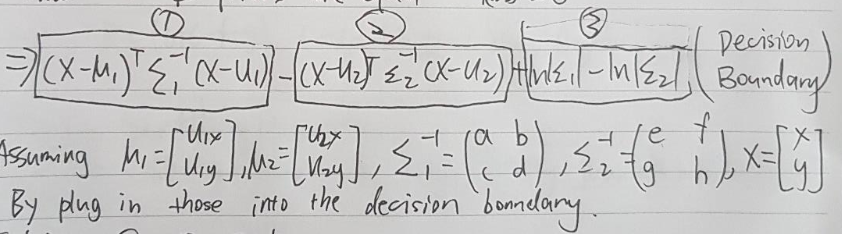 ① ② ③
⇒ (x-μ₁)ᵀ Σ₁⁻¹ (x-u₁) - (x-u₂)ᵀ Σ₂⁻¹ (x-u₂) + ln|Σ₁| - ln|Σ₂|, (Decision Boundary)
Assuming μ₁ = [u₁ₓ u₁y], μ₂ = [u₂ₓ u₂y], Σ₁⁻¹ = (a b c d), Σ₂⁻¹ = (e f g h), x = [x y]
By plug in those into the decision bonndary.